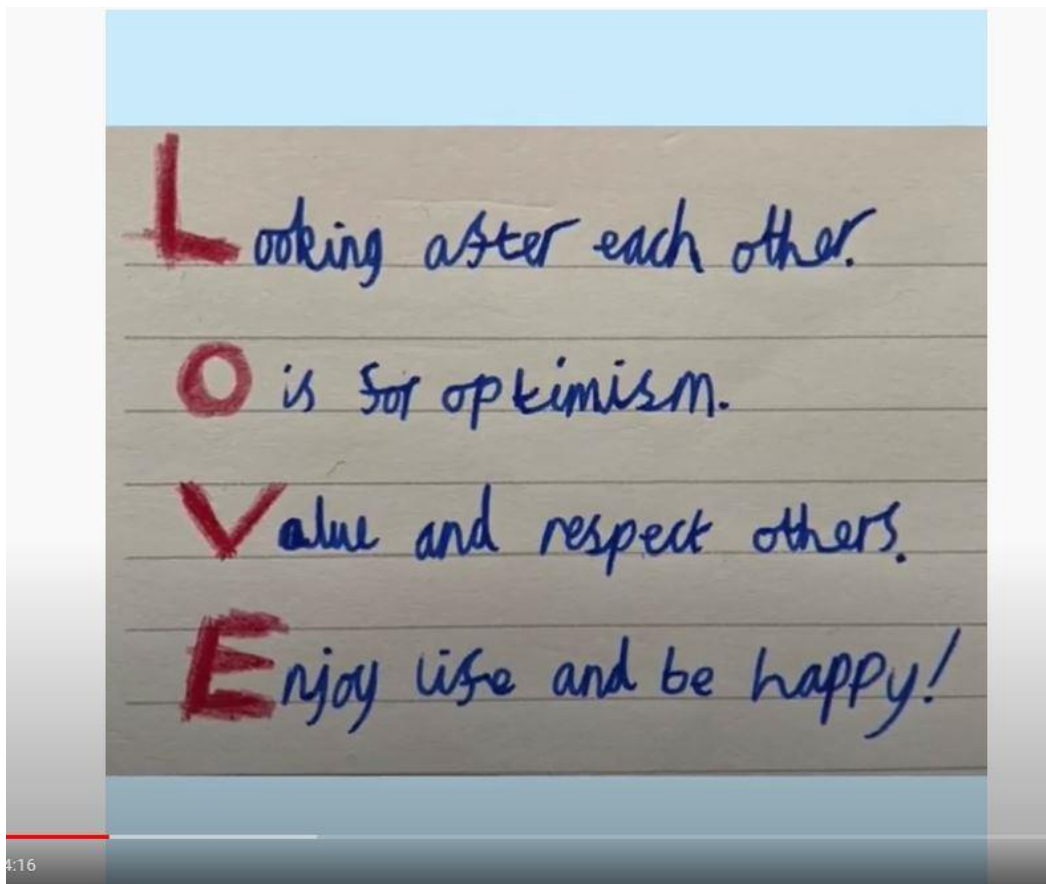 Looking after each other.
O is for optimism.
Value and respect others.
Enjoy life and be happy!
4:16